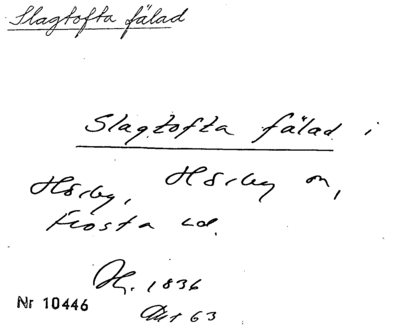 Slagtofta fälad
Slagtofta fälad i
Hörby, Hörby sn,
Frosta hd.
H. 1836
Nr 10446
Akt 63